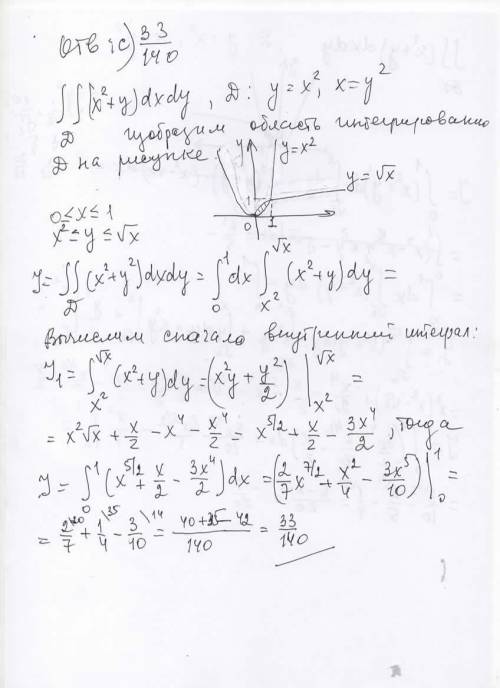 Отв: c) 33/140
∬ (x²+y)dxdy, D: y = x², x = y²
D изобразим область интегрированию
D на рисунке. y y = x²
y = √x
1
0 1
0 ≤ x ≤ 1
x² ≤ y ≤ √x
Y = ∬_D (x²+y²)dxdy = ∫₀¹ dx ∫_{x²}^{√x} (x²+y)dy =
Вычислим сначала внутренний интеграл:
Y₁ = ∫_{x²}^{√x} (x²+y)dy = (x²y + y²/2) |_{x²}^{√x} =
= x²√x + x/2 - x⁴ - x⁴/2 = x^{5/2} + x/2 - 3x⁴/2, тогда
Y = ∫₀¹ (x^{5/2} + x/2 - 3x⁴/2)dx = (2/7 x^{7/2} + x²/4 - 3x⁵/10) |₀¹ =
= 2\20/7 + 1\35/4 - 3\14/10 = (40+35-42)/140 = 33/140